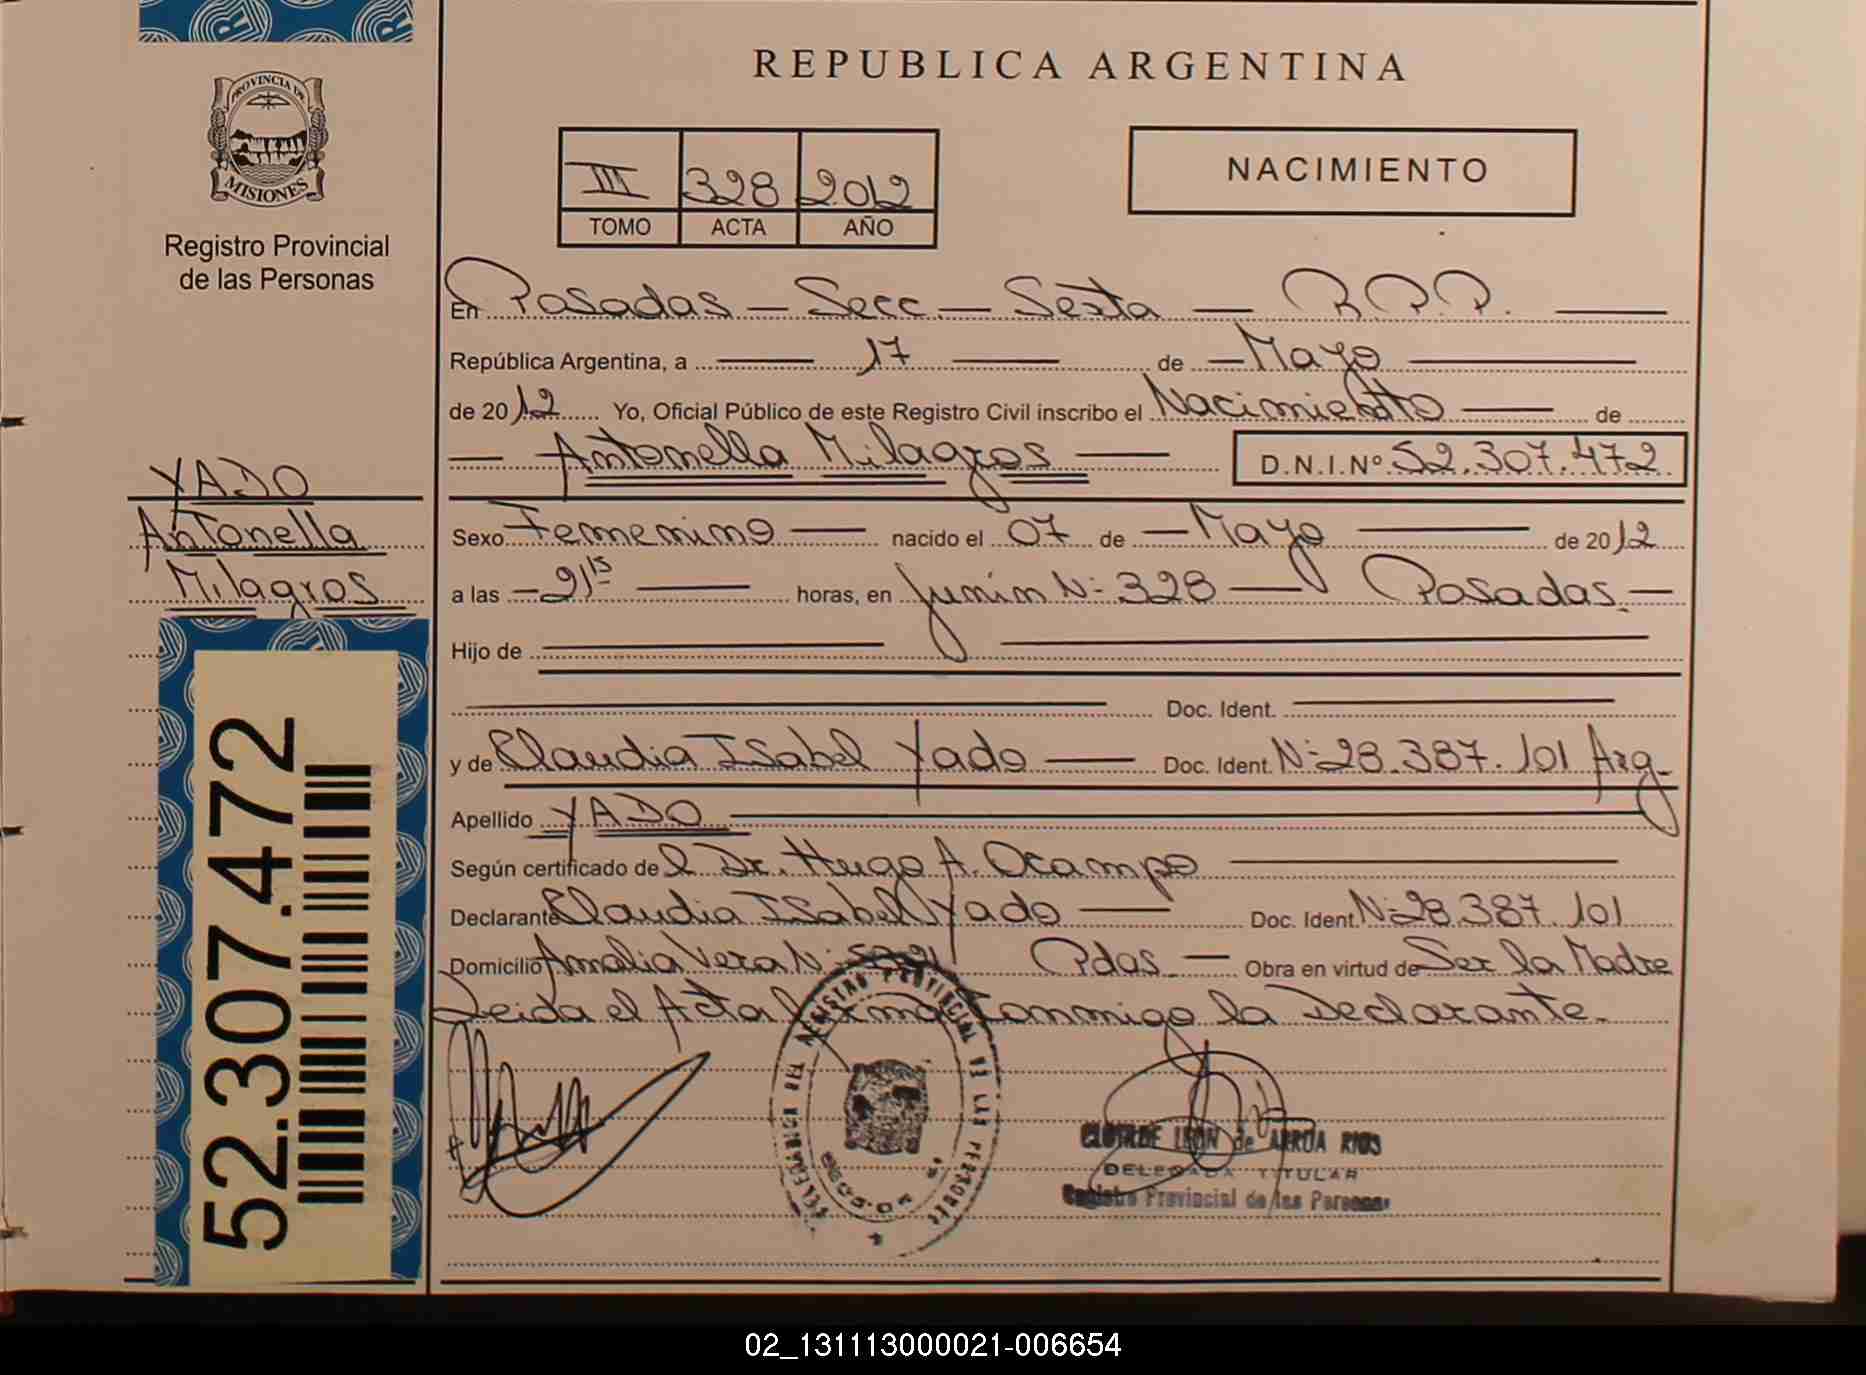 PROVINCIA DE
MISIONES
Registro Provincial
de las Personas
YADO
Antonella
Milagros
52.307.472
REPUBLICA ARGENTINA
III 328 2012
TOMO ACTA AÑO
NACIMIENTO
En Posadas — Secc. — Sexta — R.P.P. —
República Argentina, a — 17 — de — Mayo —
de 2012 Yo, Oficial Público de este Registro Civil inscribo el Nacimiento — de
— Antonella Milagros — D.N.I.Nº 52.307.472
Sexo Femenino — nacido el 07 de — Mayo — de 2012
a las — 21 15 — horas, en Junín Nº 328 — Posadas. —
Hijo de
Doc. Ident.
y de Claudia Isabel Yado — Doc. Ident. Nº 28.387.101 Arg.
Apellido YADO
Según certificado del Dr. Hugo A. Ocampo
Declarante Claudia Isabel Yado — Doc. Ident. Nº 28.387.101
Domicilio Amalia Vera Nº Pdas. — Obra en virtud de Ser la Madre
Leida el Acta Firma Conmigo la Declarante.
DEL REGISTRO PROVINCIAL DE LAS PERSONAS
CLOTILDE LEON de ARRUA RIOS
DELEGADA TITULAR
Registro Provincial de las Personas
02_131113000021-006654